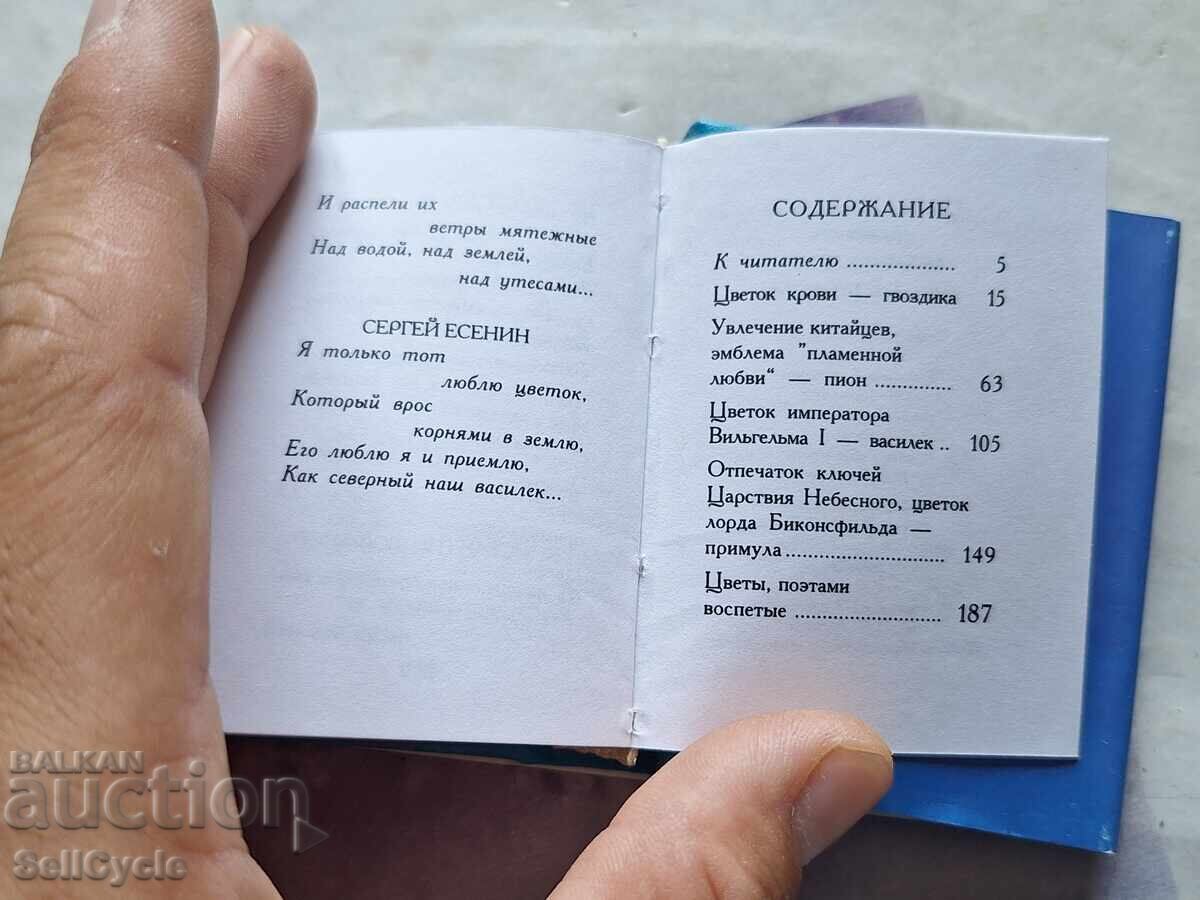 И распели их
ветры мятежные
Над водой, над землей,
над утесами...
СЕРГЕЙ ЕСЕНИН
Я только тот
люблю цветок,
Который врос
корнями в землю,
Его люблю я и приемлю,
Как северный наш василек...
СОДЕРЖАНИЕ
К читателю ................... 5
Цветок крови — гвоздика 15
Увлечение китайцев,
эмблема "пламенной
любви“ — пион ............. 63
Цветок императора
Вильгельма I — василек .. 105
Отпечаток ключей
Царствия Небесного, цветок
лорда Биконсфильда —
примула........................... 149
Цветы, поэтами
воспетые ......................... 187
BALKAN
auction
SellCycle